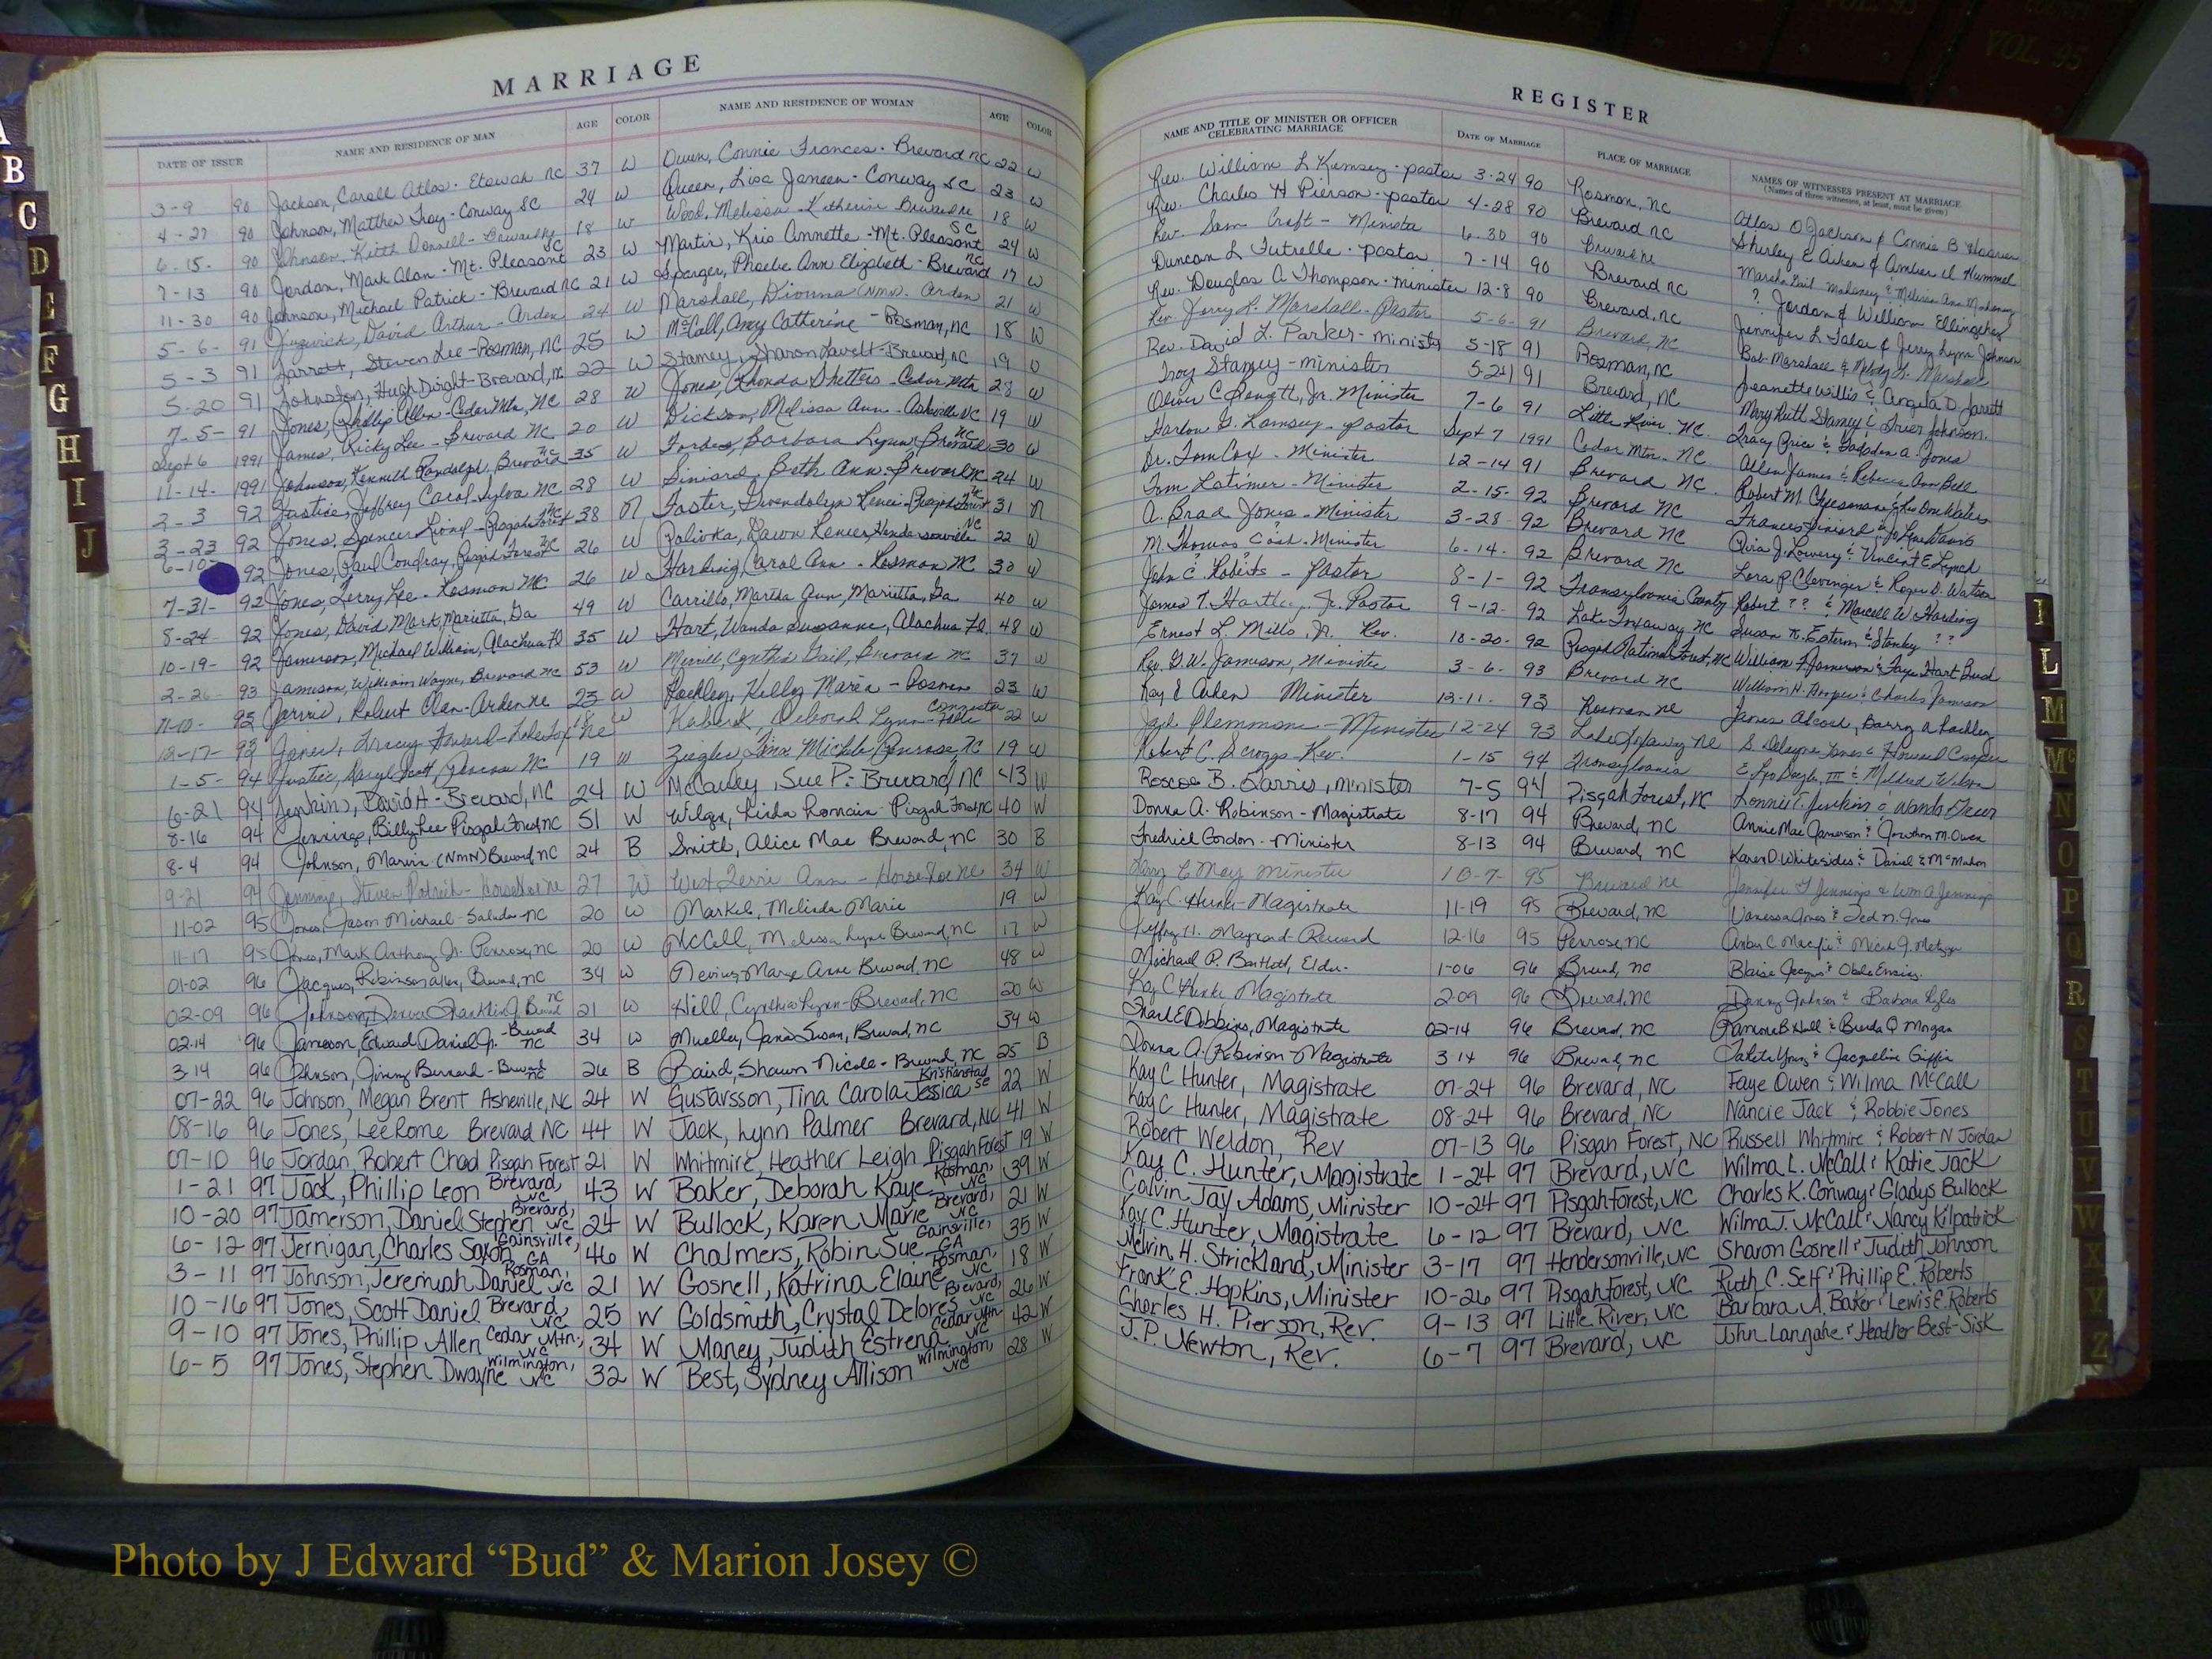 MARRIAGE
DATE OF ISSUE NAME AND RESIDENCE OF MAN AGE COLOR NAME AND RESIDENCE OF WOMAN AGE COLOR
3-9 90 Jackson, Caroll Atlas - Etowah NC 37 W Owen, Connie Frances - Brevard NC 22 W
4-27 90 Johnson, Matthew Troy - Conway SC 24 W Queen, Lisa Janeen - Conway SC 23 W
6-15- 90 Johnson, Keith Donnell - 18 W Wood, Melissa Katherine Brevard NC 18 W
7-13 90 Jordan, Mark Alan - Mt. Pleasant SC 23 W Martin, Kris Annette - Mt. Pleasant SC 24 W
11-30 90 Johnson, Michael Patrick - Brevard NC 21 W Sparger, Phoebe Ann Elizabeth - Brevard NC 17 W
5-6- 91 David Arthur - Arden 24 W Marshall, Dionna (NMN) - Arden 21 W
5-3 91 Jarrett, Steven Lee - Rosman, NC 25 W McCall, Amy Catherine - Rosman, NC 18 W
5-20 91 Johnston, Hugh Dwight - Brevard, NC 22 W Stamey, Sharon - Brevard, NC 19 W
7-5- 91 Jones, Phillip Allen - Cedar Mtn, NC 28 W Jones, Rhonda Shetters - Cedar Mtn 28 W
Sept 6 1991 James, Ricky Lee - Brevard NC 20 W Dickson, Melissa Ann - Asheville NC 19 W
11-14- 1991 Johnson, Kenneth Randolph, Brevard NC 35 W Barbara Lynn, Brevard NC 30 W
2-3 92 Justice, Jeffrey Carol - Sylva NC 28 W Siniard, Beth Ann - Brevard NC 24 W
3-23 92 Jones, Spencer Lionel - Pisgah Forest NC 38 N Foster, Gwendolyn Renee - Pisgah Forest NC 31 N
6-10- 92 Jones, Paul Condray, Pisgah Forest NC 26 W Dawn Renee, Hendersonville NC 22 W
7-31- 92 Jones, Terry Lee - Rosman NC 26 W Harding, Carol Ann - Rosman NC 30 W
8-24- 92 Jones, David Mark, Marietta, Ga 49 W Carrillo, Martha Ann, Marietta, Ga 40 W
10-19- 92 Jamerson, Michael William, Alachua Fl 35 W Hart, Wanda Susanne, Alachua Fl. 48 W
2-26- 93 Jamison, William Wayne, Brevard NC 53 W Merrill, Cynthia Gail, Brevard NC 37 W
11-10- 93 Jarvis, Robert Alan - Arden NC 23 W Lockley, Kelly Maria - Rosman 23 W
12-17- 93 Jones, Tracey - Lake Tox NC 18 W Deborah Lynn - 22 W
1-5- 94 Justice, Daryl Scott, Penrose NC 19 W Ziegler, Tina Michele, Penrose, NC 19 W
6-21 94 Jenkins, David H - Brevard, NC 24 W McCauley, Sue P. - Brevard, NC 43 W
8-16 94 Jennings, Billy Lee Pisgah Forest, NC 51 W Linda Romain - Pisgah Forest, NC 40 W
8-4 94 Johnson, Marvin (NMN) Brevard, NC 24 B Smith, Alice Mae Brevard, NC 30 B
9-21 94 Jennings, Steven Patrick - Horse Shoe NC 27 W West, Terri Ann - Horse Shoe NC 34 W
11-02 95 Jones, Jason Michael - Saluda NC 20 W Markel, Melinda Marie 19 W
11-17 95 Jones, Mark Anthony Jr. Penrose, NC 20 W McCall, Melissa Lynn Brevard, NC 17 W
01-02 96 Jacques, Robinson Allen, Brevard, NC 34 W Nevius, Marye Anne Brevard, NC 48 W
02-09 96 Johnson, Denver Franklin Jr. Brevard NC 21 W Hill, Cynthia Lynn - Brevard, NC 20 W
02-14 96 Jameson, Edward Daniel Jr. - Brevard NC 34 W Mueller, Jana Susan, Brevard, NC 34 W
3-14 96 Johnson, Jimmy Bernard - Brevard NC 26 B Baird, Shawn Nicole - Brevard, NC 25 B
07-22 96 Johnson, Megan Brent Asheville, NC 24 W Gustavsson, Tina Carola Jessica Kristianstad SE 22 W
08-16 96 Jones, Lee Rome Brevard NC 44 W Jack, Lynn Palmer Brevard, NC 41 W
07-10 96 Jordan, Robert Chad Pisgah Forest 21 W Whitmire, Heather Leigh Pisgah Forest 19 W
1-21 97 Jack, Phillip Leon Brevard, NC 43 W Baker, Deborah Kaye Rosman, NC 39 W
10-20 97 Jamerson, Daniel Stephen Brevard, NC 24 W Bullock, Karen Marie Brevard, NC 21 W
6-12 97 Jernigan, Charles Saxon Gainsville, GA 46 W Chalmers, Robin Sue Gainsville, GA 35 W
3-11 97 Johnson, Jeremiah Daniel Rosman, NC 21 W Gosnell, Katrina Elaine Rosman, NC 18 W
10-16 97 Jones, Scott Daniel Brevard, NC 25 W Goldsmith, Crystal Delores Brevard, NC 26 W
9-10 97 Jones, Phillip Allen Cedar Mtn., NC 34 W Maney, Judith Estrena Cedar Mtn NC 42 W
6-5 97 Jones, Stephen Dwayne Wilmington, NC 32 W Best, Sydney Allison Wilmington, NC 28 W
REGISTER
NAME AND TITLE OF MINISTER OR OFFICER CELEBRATING MARRIAGE DATE OF MARRIAGE PLACE OF MARRIAGE NAMES OF WITNESSES PRESENT AT MARRIAGE
(Names of three witnesses, at least, must be given)
Rev. William L Kumsey - pastor 3-24 90 Rosman, NC Atlas O Jackson & Connie B
Rev. Charles H Pierson - pastor 4-28 90 Brevard NC Shirley E Aiken & Amber Hummel
Rev. Sam Craft - Minister 6-30 90 Brevard NC Marsha Gail Mahoney & Melissa Ann Mahoney
Duncan L Futrelle - pastor 7-14 90 Brevard NC ? Jordan & William Ellingsburg
Rev. Douglas A Thompson - minister 12-8 90 Brevard, NC Jennifer L & Jerry Lynn Johnson
Rev Jerry L. Marshall - Pastor 5-6- 91 Brevard, NC Bob Marshall & Melody Marshall
Rev. David L. Parker - minister 5-18 91 Rosman, NC Jeanette Willis & Angela D. Jarrett
Troy Stamey - minister 5-21 91 Brevard, NC Mary Ruth Stamey & Greer Johnson
Oliver C Jr. Minister 7-6 91 Little River NC Tracy Price & A. Jones
Harlon G. Ramsey - Pastor Sept 7 1991 Cedar Mtn. NC Allen James & Rebecca Ann Bell
Dr. Tom Cox - Minister 12-14 91 Brevard NC Robert M. Cheesman
Tom Latimer - Minister 2-15- 92 Brevard NC Frances Siniard
A. Brad Jones - Minister 3-28- 92 Brevard NC J. Lowery & Vincent E Lynch
M. Thomas Cash - Minister 6-14- 92 Brevard NC Lora P Clevenger & Roger D. Watson
John C. Roberts - Pastor 8-1- 92 Transylvania County Robert ?? & Marcell W. Harding
James T. Hartley, Jr. Pastor 9-12- 92 Lake Toxaway NC Susan & Stanley ??
Ernest L. Mills Jr. Rev. 10-20- 92 Pisgah National Forest, NC William F Jamerson & Faye Hart
Rev. G.W. Jamison, Minister 3-6- 93 Brevard NC William H. Hooper & Charles Jamison
Kay E Aiken Minister 12-11- 93 Rosman NC James Alcord, Barry A Lockley
Jack Plemmons - Minister 12-24 93 Lake Toxaway NC
Robert C. Scroggs - Rev. 1-15 94 Transylvania
Roscoe B. Larris, minister 7-5 94 Pisgah Forest, NC Lonnie C. Jenkins & Wanda Greer
Donna A. Robinson - Magistrate 8-17 94 Brevard, NC Annie Mae Jamerson & M. Owen
Fredrick Gordon - Minister 8-13 94 Brevard, NC Karen D. Whitesides & Daniel E McMahon
Gary C May minister 10-7- 95 Brevard NC Jennifer Jennings & Wm A Jennings
Kay C. Hunter - Magistrate 11-19 95 Brevard, NC Vanessa Jones & Ted N. Jones
Jeffrey H. Maynard - Reverend 12-16 95 Penrose, NC
Michael P. Bartlett, Elder 1-06 96 Brevard, NC Blaise Jacques &
Kay C Hunter Magistrate 2-09 96 Brevard, NC Danny Johnson & Barbara Lyles
Frank E Dobbins, Magistrate 02-14 96 Brevard, NC Ramona B Hall & Brenda Q Morgan
Donna A. Robinson - Magistrate 3-14 96 Brevard, NC Young & Jacqueline Griffin
Kay C Hunter, Magistrate 07-24 96 Brevard, NC Faye Owen & Wilma McCall
Kay C Hunter, Magistrate 08-24 96 Brevard, NC Nancie Jack & Robbie Jones
Robert Weldon, Rev 07-13 96 Pisgah Forest, NC Russell Whitmire & Robert N Jordan
Kay C. Hunter, Magistrate 1-24 97 Brevard, NC Wilma L. McCall & Katie Jack
Calvin Jay Adams, Minister 10-24 97 Pisgah Forest, NC Charles K. Conway & Gladys Bullock
Kay C. Hunter, Magistrate 6-12 97 Brevard, NC Wilma J. McCall & Nancy Kilpatrick
Melvin H. Strickland, Minister 3-17 97 Hendersonville, NC Sharon Gosnell & Judith Johnson
Frank E. Hopkins, Minister 10-26 97 Pisgah Forest, NC Ruth C. Self & Phillip E. Roberts
Charles H. Pierson, Rev. 9-13 97 Little River, NC Barbara A. Baker & Lewis E. Roberts
J.P. Newton, Rev. 6-7 97 Brevard, NC John Langabe & Heather Best-Sisk
A
B
C
D
E
F
G
H
I
J
L
M
Mc
N
O
P
Q
R
S
T
U
V
W
X
Y
Z
VOL. 95
Photo by J Edward “Bud” & Marion Josey ©